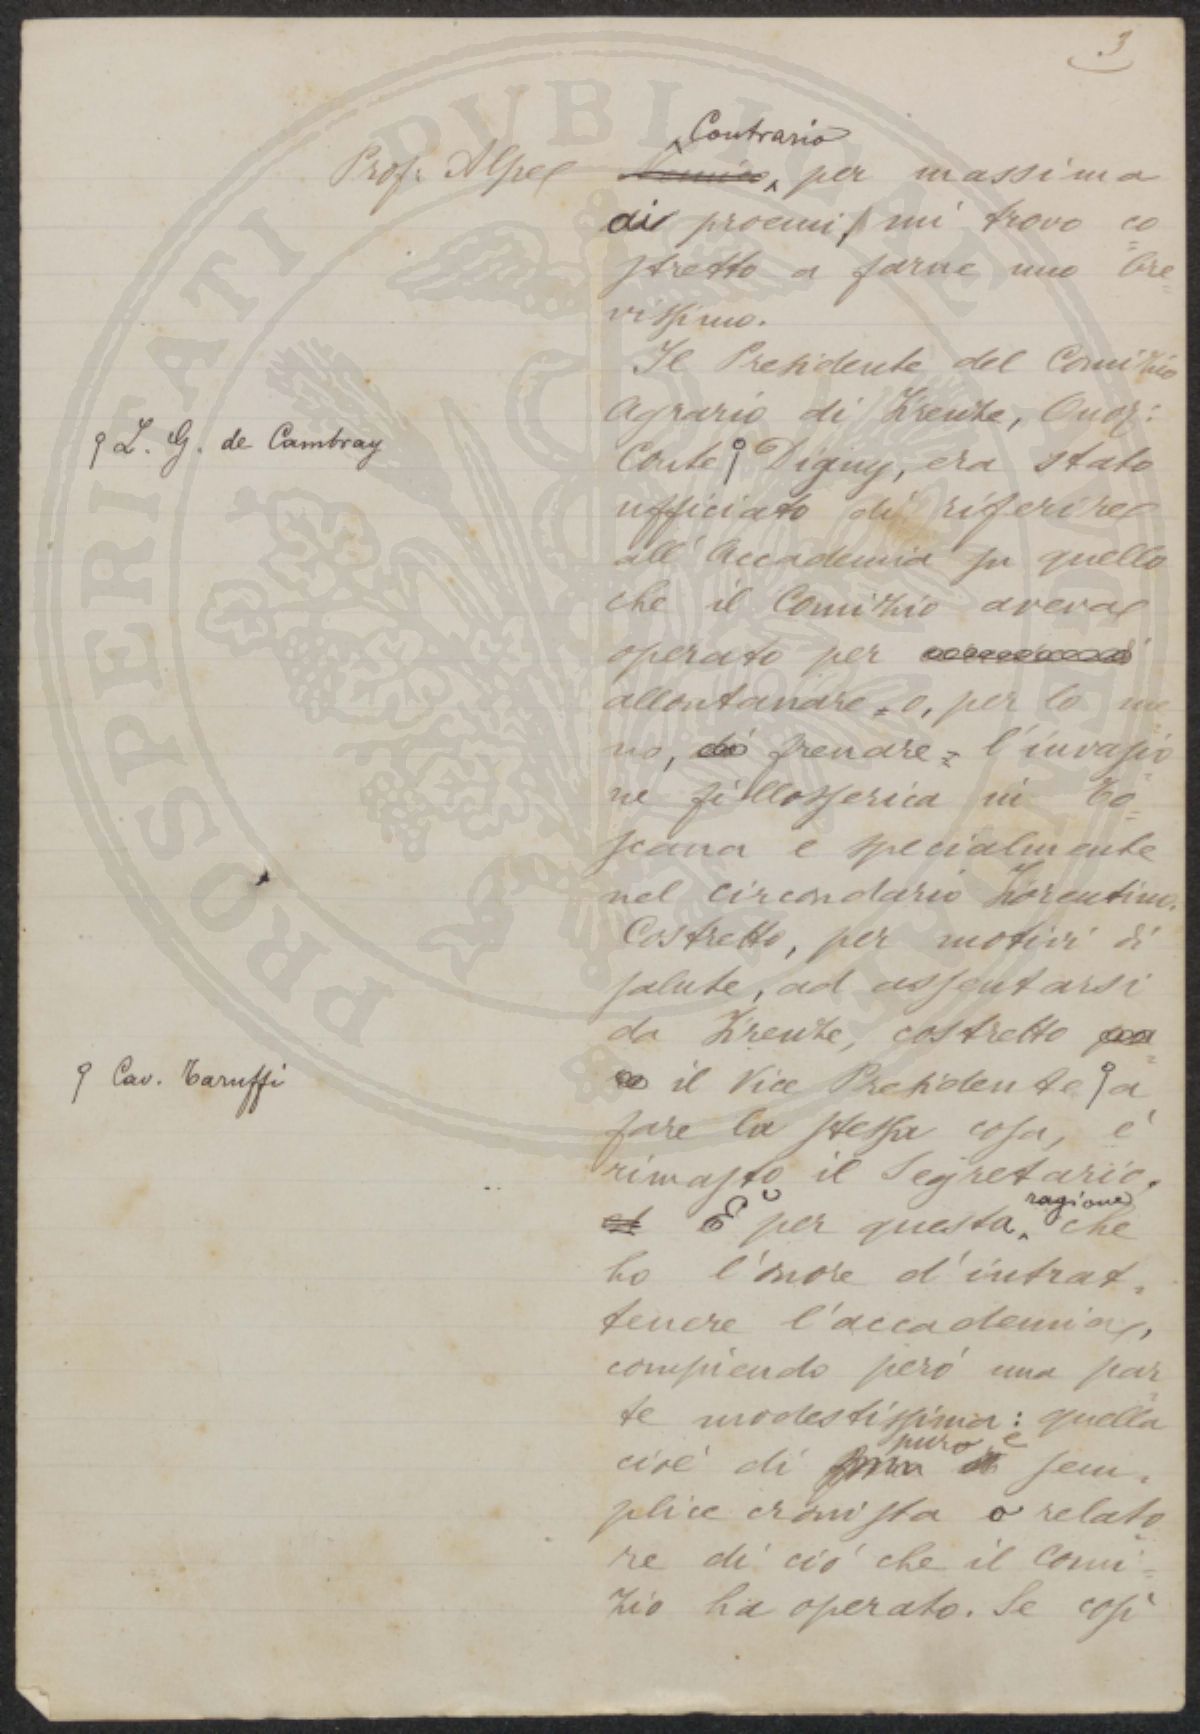 3
Contrario
Prof. Alpe Nemico, per massima
di proemi, mi trovo co
stretto a farne uno bre=
vissimo.
Il Presidente del Comizio
Agrario di Firenze, Onor:
L. G. de Cambray
Conte Digny, era stato
ufficiato di riferire
all'Accademia su quello
che il Comizio aveva
operato per
allontanare = o, per lo me
no, di frenare = l'invasio
ne fillosserica in To=
scana e specialmente
nel circondario Fiorentino.
Costretto, per motivi di
salute, ad assentarsi
da Firenze, costretto
Cav. Taruffi
il Vice Presidente a
fare la stessa cosa, è
rimasto il Segretario.
ragione
et È per questa che
ho l'onore d'intrat=
tenere l'accademia,
compiendo però una par
te modestissima: quella
puro e
cioè di sem=
plice cronista o relato
re di ciò che il Comi=
zio ha operato. Se così
PROSPERITATI PUBLICAE AUGENDAE